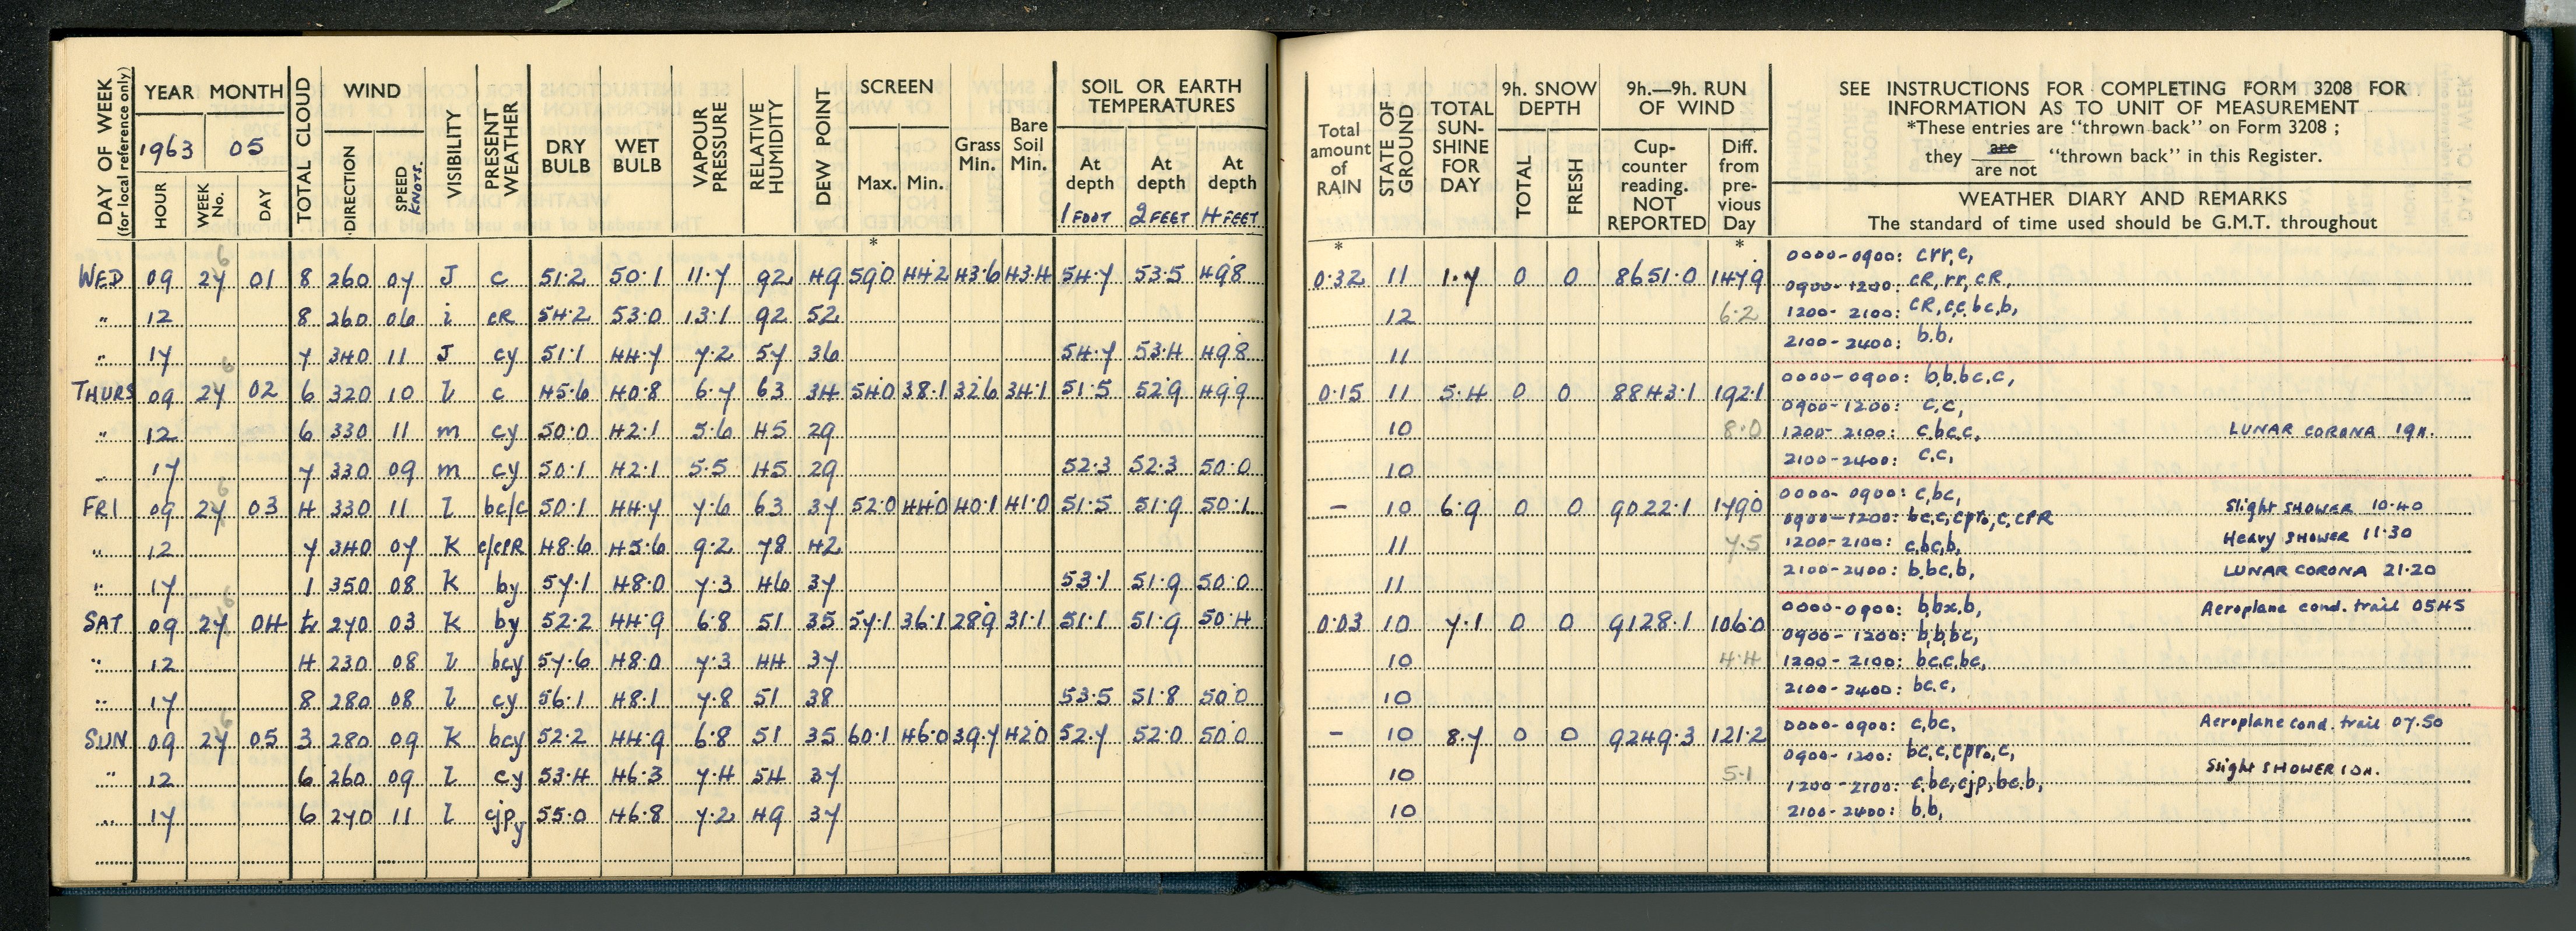 DAY OF WEEK
(for local reference only)
YEAR MONTH
1963 05
HOUR
WEEK No.
DAY
TOTAL CLOUD
WIND
DIRECTION
SPEED
KNOTS.
VISIBILITY
PRESENT WEATHER
DRY BULB
WET BULB
VAPOUR PRESSURE
RELATIVE HUMIDITY
DEW POINT
SCREEN
Max. Min.
Grass Min.
Bare Soil Min.
SOIL OR EARTH TEMPERATURES
At depth At depth At depth
1 FOOT 2 FEET 4 FEET
*
WED 09 27 6 01 8 260 07 J c 51.2 50.1 11.7 92 49 59.0 44.2 43.6 43.4 54.7 53.5 49.8
" 12 8 260 06 i cR 54.2 53.0 13.1 92 52
" 17 7 340 11 J cy 51.1 44.7 7.2 57 36 54.7 53.4 49.8
THURS 09 27 6 02 6 320 10 l c 45.6 40.8 6.7 63 34 54.0 38.1 32.6 34.1 51.5 52.9 49.9
" 12 6 330 11 m cy 50.0 42.1 5.6 45 29
" 17 7 330 09 m cy 50.1 42.1 5.5 45 29 52.3 52.3 50.0
FRI 09 27 6 03 4 330 11 l bc/c 50.1 44.7 7.6 63 37 52.0 44.0 40.1 41.0 51.5 51.9 50.1
" 12 7 340 07 K c/cPR 48.6 45.6 9.2 78 42
" 17 1 350 08 K by 57.1 48.0 7.3 46 37 53.1 51.9 50.0
SAT 09 27 6 04 tr 270 03 K by 52.2 44.9 6.8 51 35 57.1 36.1 28.9 31.1 51.1 51.9 50.4
" 12 4 230 08 l bcy 57.6 48.0 7.3 44 37
" 17 8 280 08 l cy 56.1 48.1 7.8 51 38 53.5 51.8 50.0
SUN 09 27 6 05 3 280 09 K bcy 52.2 44.9 6.8 51 35 60.1 46.0 39.7 42.0 52.7 52.0 50.0
" 12 6 260 09 l cy 53.4 46.3 7.4 54 37
" 17 6 270 11 l cjpy 55.0 46.8 7.2 49 37
Total amount of RAIN
STATE OF GROUND
TOTAL SUN-SHINE FOR DAY
9h. SNOW DEPTH
TOTAL
FRESH
9h.—9h. RUN OF WIND
Cup-counter reading. NOT REPORTED
Diff. from pre-vious Day
SEE INSTRUCTIONS FOR COMPLETING FORM 3208 FOR
INFORMATION AS TO UNIT OF MEASUREMENT
*These entries are "thrown back" on Form 3208 ;
they are / are not "thrown back" in this Register.
WEATHER DIARY AND REMARKS
The standard of time used should be G.M.T. throughout
* *
0000-0900: crr,c,
0.32 11 1.7 0 0 8651.0 147.9 0900-1200: cR,rr,cR,
12 6.2 1200-2100: cR,cc,bc,b,
11 2100-2400: b.b,
0000-0900: b.b.bc.c,
0.15 11 5.4 0 0 8843.1 192.1 0900-1200: c.c,
10 8.0 1200-2100: c.bc.c, LUNAR CORONA 19H.
10 2100-2400: c.c,
0000-0900: c,bc,
— 10 6.9 0 0 9022.1 179.0 0900-1200: bc,c,cpro,c,cPR Slight SHOWER 10.40
11 7.5 1200-2100: c.bc,b, Heavy SHOWER 11.30
11 2100-2400: b.bc,b, LUNAR CORONA 21.20
0000-0900: b,bx,b, Aeroplane cond. trail 0545
0.03 10 7.1 0 0 9128.1 106.0 0900-1200: b,b,bc,
10 4.4 1200-2100: bc.c.bc,
10 2100-2400: bc.c,
0000-0900: c,bc, Aeroplane cond. trail 07.50
— 10 8.7 0 0 9249.3 121.2 0900-1200: bc,c,cpro,c,
10 5.1 1200-2100: c.bc,cjp,bc.b, Slight SHOWER 10H.
10 2100-2400: b.b,